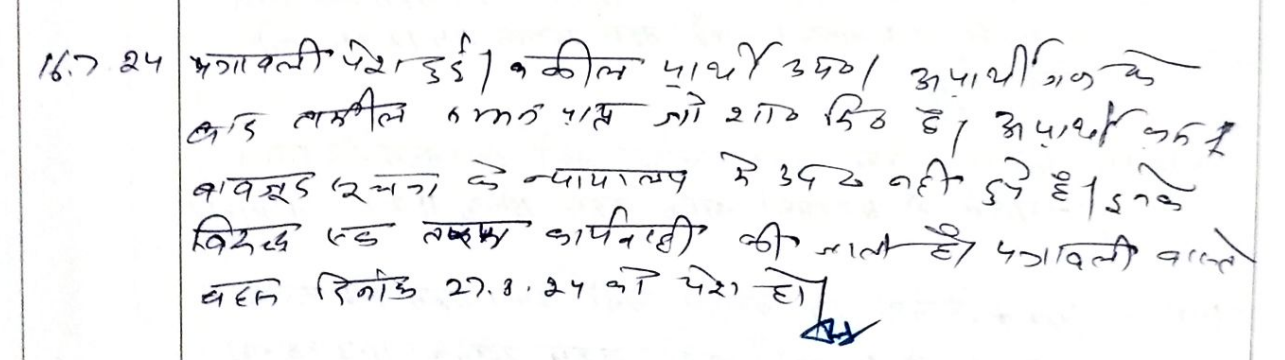 16.7.24 पत्रावली पेश हुई। वकील प्रार्थी उप०। अप्रार्थीगण के
बाद तामील सम्मन प्राप्त जो शा० मि० है। अप्रार्थी
बावजूद सूचना के न्यायालय में उप० नहीं हुये हैं। इनके
विरुद्ध एक तरफा कार्यवाही की जाती है। पत्रावली वास्ते
बहस दिनांक 27.8.24 को पेश हो।